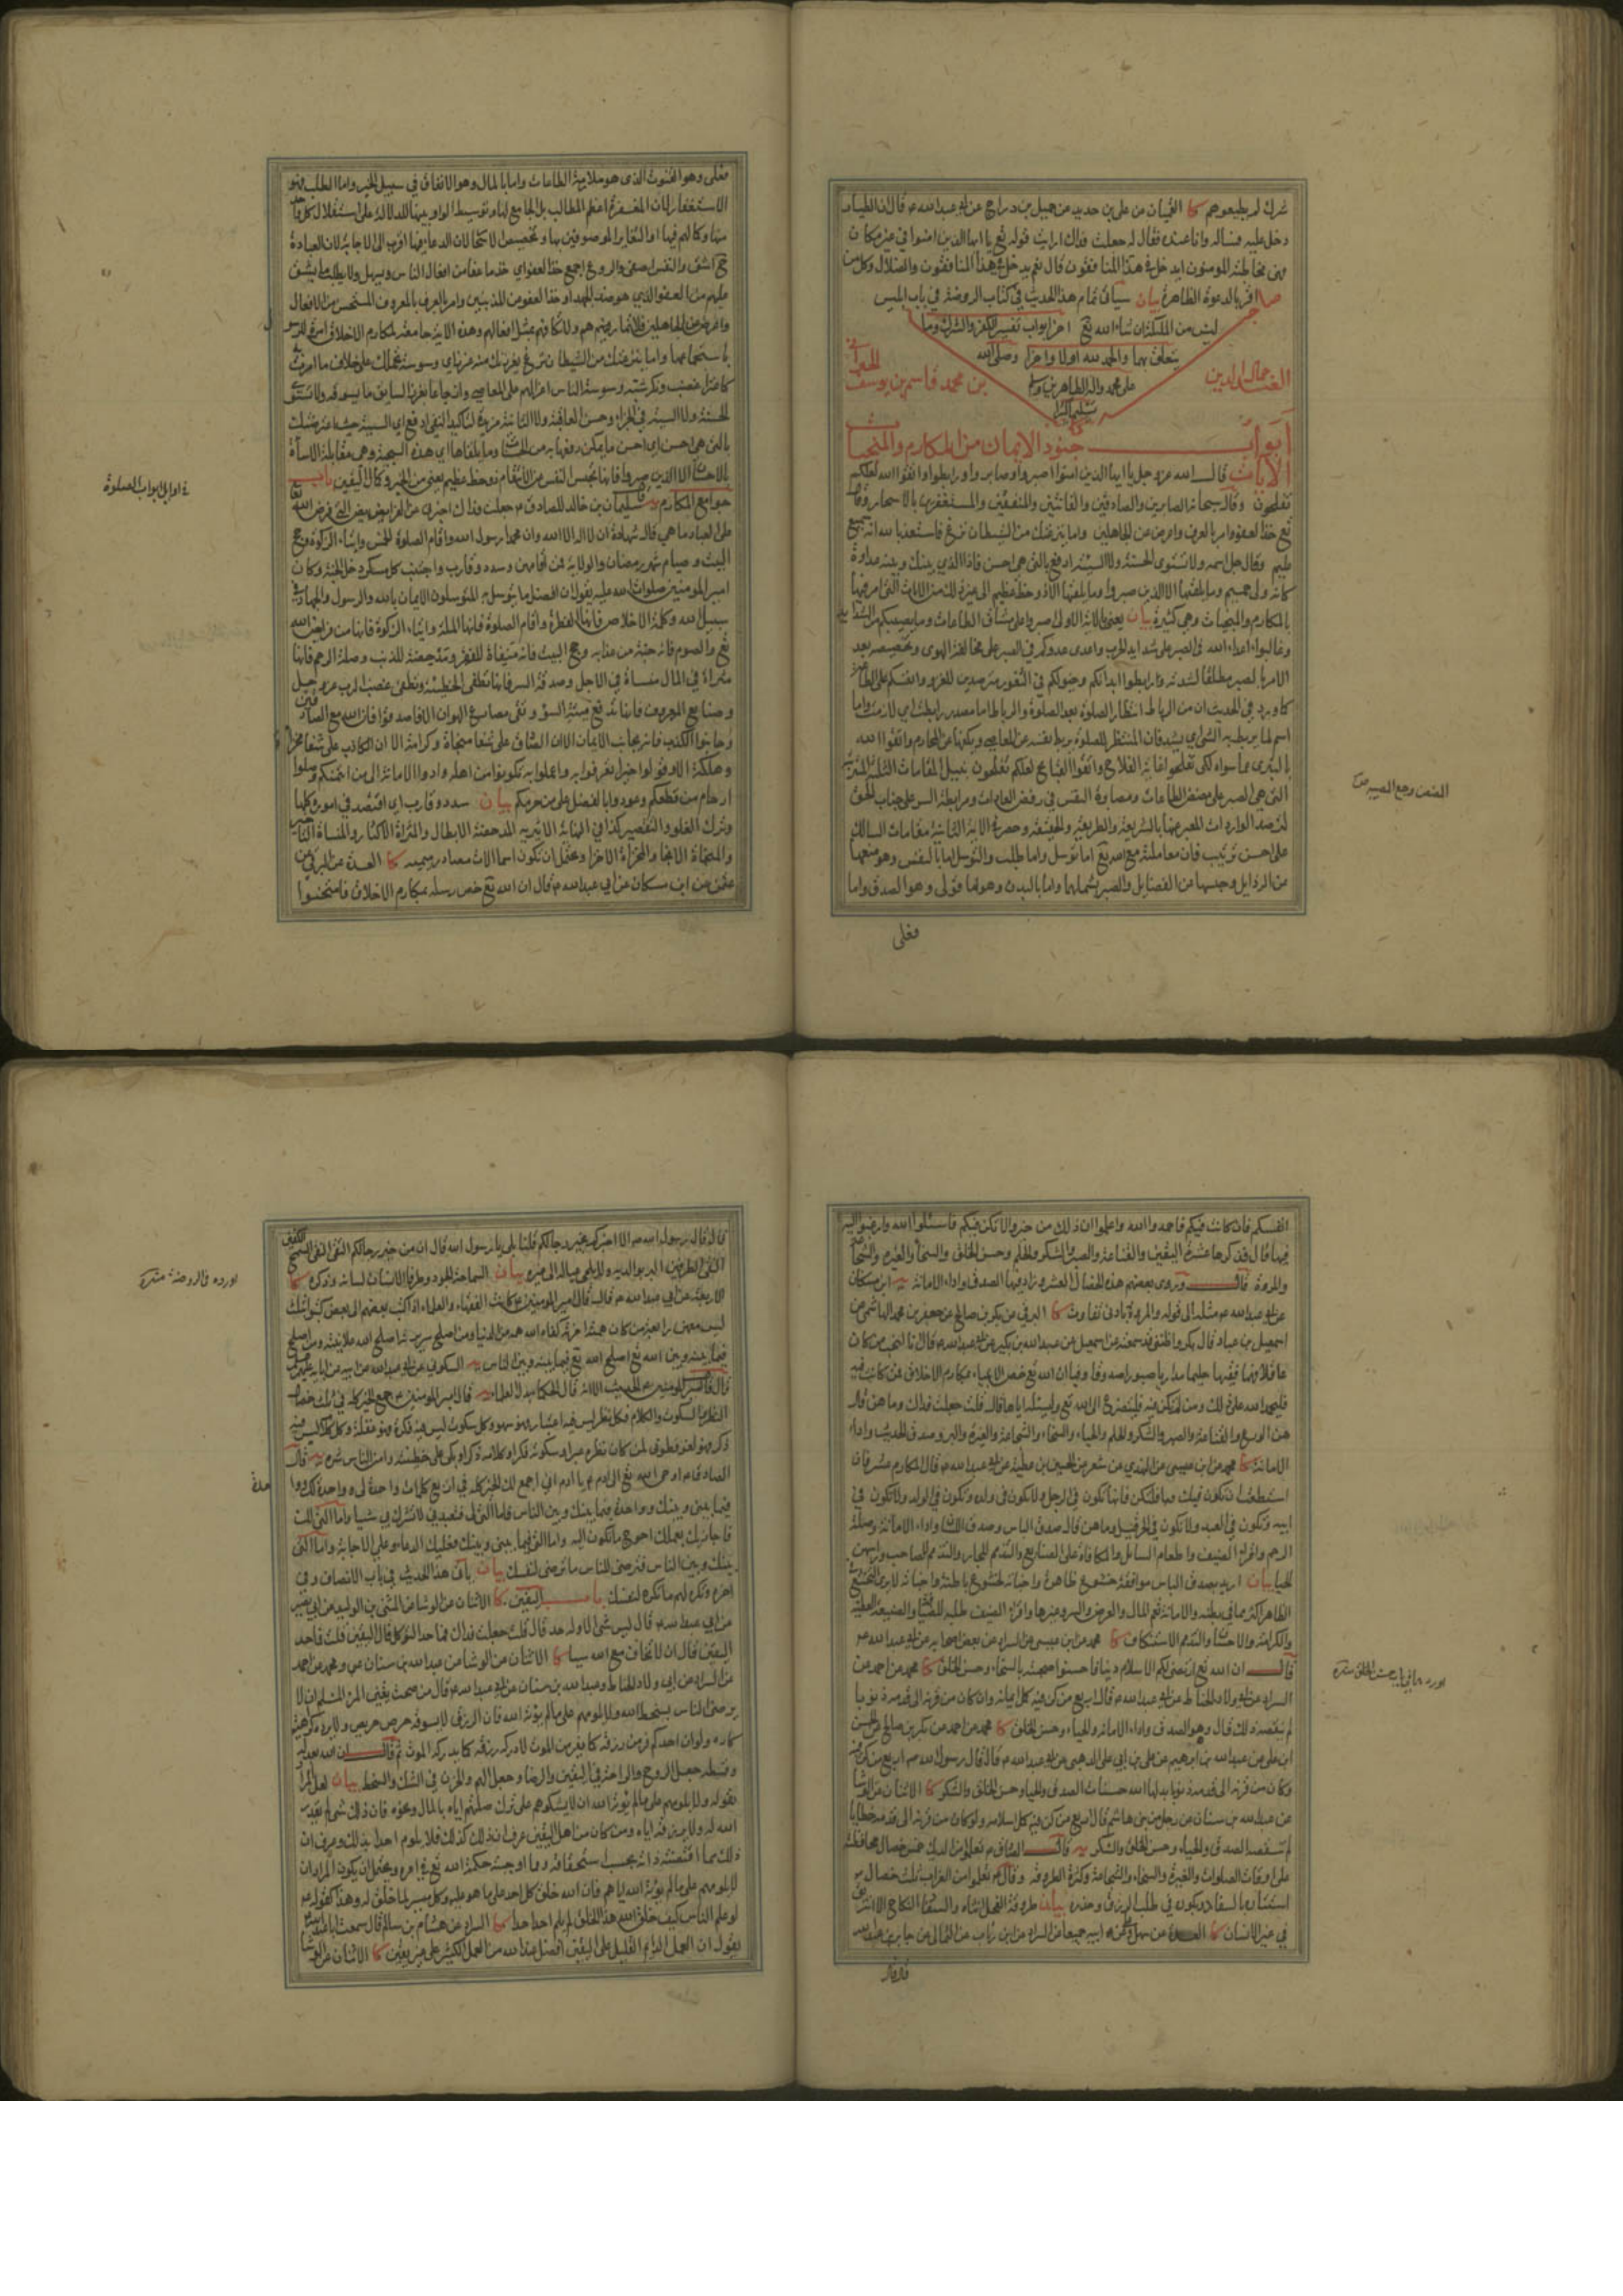 شرك لم يطيعوهم كا الثيسان عن علي بن حديد عن جميل بن دراج عن ابي عبد الله ع قال ان الطيار
دخل عليه فسأله وانا عنده فقال له جعلت فداك ارايت قوله تع يا ايها الذين امنوا في غير مكان
من مخاطبة المؤمنين ايدخل في هذا المنافقون قال نعم يدخل في هذا المنافقون والضلال وكل من
اقر بالدعوة الظاهرة بيان سياتي تمام هذا الحديث في كتاب الروضة في باب ابليس
ليس من الملئكة ان شاء الله تع اخر ابواب تفسير الكفر والشرك وما
يتعلق بهما والحمد لله اولا واخرا وصلى الله
على محمد واله الطاهرين وسلم
تسليما كثيرا
جمال الدين
بن محمد قاسم بن يوسف
ابواب جنود الايمان من المكارم والمنجيات
الايات قال الله عز وجل يا ايها الذين امنوا اصبروا وصابروا ورابطوا واتقوا الله لعلكم
تفلحون وقال سبحانه الصابرين والصادقين والقانتين والمنفقين والمستغفرين بالاسحار وقال
تع خذ العفو وامر بالعرف واعرض عن الجاهلين واما ينزغنك من الشيطان نزغ فاستعذ بالله انه سميع
عليم وقال جل اسمه ولا تستوي الحسنة ولا السيئة ادفع بالتي هي احسن فاذا الذي بينك وبينه عداوة
كانه ولي حميم وما يلقيها الا الذين صبروا وما يلقيها الا ذو حظ عظيم الى غير ذلك من الايات التي امر فيها
بالمكارم والمنجيات وهي كثيرة بيان يعني بالاية الاولى اصبروا على مشاق الطاعات وما يصيبكم من الشدايد
وغالبوا اعداء الله في الصبر على شدايد الحرب واعدى عدوكم في الصبر على مخالفة الهوى وتخصيصه بعد
الامر بالصبر مطلقا لشدته ورابطوا ابدانكم وخيولكم في الثغور مترصدين للغزو وانفسكم على الطاعة
كما ورد في الحديث ان من الرباط انتظار الصلوة بعد الصلوة والرباط اما مصدر رابطت اي لازمت واما
اسم لما يربط به الشئ اي يشد فان المنتظر للصلوة يربط نفسه عن المعاصي ويكفها عن المحارم واتقوا الله
بالتبري مما سواه لكي تفلحوا غاية الفلاح واتقوا القبايح لعلكم تفلحون بنيل المقامات الثلثة المترتبة
التي هي الصبر على مضض الطاعات ومصابرة النفس في رفض العادات ومرابطة السر على جناب الحق
لترصد الواردات المعبر عنها بالشريعة والطريقة والحقيقة وحصر في الاية الثانية مقامات السالك
على احسن ترتيب فان معاملته مع الله تع اما توسل واما طلب والتوسل اما بالنفس وهو منعها
عن الرذايل وحبسها عن الفضايل والصبر يشملهما واما بالبدن وهو اما قولي وهو الصدق واما
فعلي
فعلي وهو القنوت الذي هو ملازمة الطاعات واما بالمال وهو الانفاق في سبيل الخير واما الطلب فهو
الاستغفار لان المغفرة اعظم المطالب بل الجامع لها وتوسيط الواو بينها للدلالة على استقلال كل واحد
منها وكمالهم فيها او لتغاير الموصوفين بها وتخصيص الاسحار لان الدعاء فيها اقرب الى الاجابة لان العبادة
ح اشق والنفس اصفى والروع اجمع خذ العفو اي خذ ما عفا من افعال الناس وسهل ولا يطلب ما يشق
عليهم من العفو الذي هو ضد الجهد او خذ العفو من المذنبين وامر بالعرف بالمعروف المستحسن من الافعال
واعرض عن الجاهلين فلا تمارينهم ولا تكافهم بمثل افعالهم وهذه الاية جامعة لمكارم الاخلاق امرة للرسول
باستجماعها واما ينزغنك من الشيطان نزغ يغزنك منه غرز اي وسوسة تحملك على خلاف ما امرت به
كاعتراء غضب وفكر شبه وسوسة الناس اغراءهم على المعاصي وانزعاجا بغرز السايق ما يسوقه ولا تستوي
الحسنة ولا السيئة في الجزاء وحسن العاقبة ولا الثانية مزيدة لتاكيد النفي ادفع اي السيئة حيث اعترضتك
بالتي هي احسن اي احسن ما يمكن دفعها به من الحسنات وما يلقاها اي هذه السجية وهي مقابلة الاساءة
بالاحسان الا الذين صبروا فانها تحبس النفس من الانتقام ذو حظ عظيم يعني من الخير وكمال اليقين باب
جوامع المكارم يه سليمان بن خالد للصادق ع جعلت فداك اخبرني عن الفرايض التي فرض الله تعالى
على العباد ما هي قال شهادة ان لا اله الا الله وان محمدا رسول الله واقام الصلوة الخمس وايتاء الزكوة وحج
البيت وصيام شهر رمضان والولاية فمن اقامهن وسدد وقارب واجتنب كل مسكر دخل الجنة وكان
امير المؤمنين صلوات الله عليه يقول ان افضل ما يتوسل به المتوسلون الايمان بالله والرسول والجهاد في
سبيل الله وكلمة الاخلاص فانها الفطرة واقام الصلوة فانها الملة وايتاء الزكوة فانها من فرايض الله
تع والصوم فانه جنة من عذابه وحج البيت فانه منفاة للفقر ومدحضة للذنب وصلة الرحم فانها
مثراة في المال منساة في الاجل وصدقة السر فانها تطفئ الخطيئة وتطفئ غضب الرب عز وجل
وصنايع المعروف فانها تدفع ميتة السوء وتقي مصارع الهوان الا فاصدقوا فان الله مع الصادقين
وجانبوا الكذب فانه يجانب الايمان الا ان الصادق على شفا منجاة وكرامة الا ان الكاذب على شفا مخزاة
وهلكة الا وقولوا خيرا تعرفوا به واعملوا به تكونوا من اهله وادوا الامانة الى من ائتمنكم وصلوا
ارحام من قطعكم وعودوا بالفضل على من حرمكم بيان سدد وقارب اي اقتصد في امورك كلها
وترك الغلو والتقصير كذا في النهاية الاثيرية المدحضة الابطال والمثراة الاكثار والمنساة التاخير
والمنجاة الانجاء والمخزاة الاخزاء ويحتمل ان تكون اسماء الات مصادر ميمية كا العدة عن البرقي عن
عثمن عن ابن مسكان عن ابي عبد الله ع قال ان الله تع خص رسله بمكارم الاخلاق فامتحنوا
في اوايل ابواب الصلوة
انفسكم فان كانت فيكم فاحمدوا الله واعلموا ان ذلك من خير والا تكن فيكم فاسئلوا الله وارغبوا اليه
فيها قال فذكرها عشرة اليقين والقناعة والصبر والشكر والحلم وحسن الخلق والسخاء والغيرة والشجاعة
والمروة قال وروى بعضهم هذه الخصال العشر وزاد فيها الصدق واداء الامانة يه ابن مسكان
عن ابي عبد الله ع مثله الى قوله والمروة بادنى تفاوت كا البرقي عن بكر بن صالح عن جعفر بن محمد الهاشمي عن
اسمعيل بن عباد قال بكر واظنني قد سمعته من اسمعيل عن عبد الله بن بكير عن ابي عبد الله ع قال انا لنحب من كان
عاقلا فهما فقيها حليما مداريا صبورا صدوقا وفيا ان الله تع خص الانبياء بمكارم الاخلاق فمن كانت فيه
فليحمد الله على ذلك ومن لم تكن فيه فليتضرع الى الله تع وليسئله اياها قال قلت جعلت فداك وما هن قال
هن الورع والقناعة والصبر والشكر والحلم والحياء والسخاء والشجاعة والغيرة والبر وصدق الحديث واداء
الامانة كا محمد عن ابن عيسى عن النهدي عن شعر عن الحسين بن عطية عن ابي عبد الله ع قال المكارم عشر فان
استطعت ان تكون فيك فلتكن فانها تكون في الرجل ولا تكون في ولده وتكون في الولد ولا تكون في
ابيه وتكون في العبد ولا تكون في الحر قيل وما هن قال صدق الباس وصدق اللسان واداء الامانة وصلة
الرحم واقراء الضيف واطعام السائل والمكافاة على الصنايع والتذمم للجار والتذمم للصاحب وراسهن
الحياء بيان اريد بصدق الباس موافقة خشوع ظاهره واخباته لخشوع باطنه واخباته لا يرى التخشع
ان الله تع ارتضى لكم الاسلام دينا فاحسنوا صحبته بالسخاء وحسن الخلق كا محمد عن احمد عن
السراد عن ابي ولاد الحناط عن ابي عبد الله ع قال اربع من كن فيه كمل ايمانه وان كان من قرنه الى قدمه ذنوبا
لم ينقصه ذلك قال وهو الصدق واداء الامانة والحياء وحسن الخلق كا محمد عن احمد عن بكر بن صالح عن الحسن
ابن علي عن عبد الله بن ابرهيم عن علي بن ابي علي اللهبي عن ابي عبد الله ع قال قال رسول الله ص اربع من كن فيه
وكان من قرنه الى قدمه ذنوبا بدلها الله حسنات الصدق والحياء وحسن الخلق والشكر كا الاثنان عن الوشا
عن عبد الله بن سنان عن رجل من بني هاشم قال اربع من كن فيه كمل اسلامه ولو كان من قرنه الى قدمه خطايا
لم تنقصه الصدق والحياء وحسن الخلق والشكر يه قال الصادق ع تعلموا من الديك خمس خصال محافظته
على اوقات الصلوات والغيرة والسخاء والشجاعة وكثرة الطروقة وقال ع تعلموا من الغراب ثلث خصال
استتاره بالسفاد وبكوره في طلب الرزق وحذره بيان طروقة الفحل انثاه والسفاد النكاح
في غير الانسان كا العدة عن سهل وعلي عن ابيه جميعا عن السراد عن ابن رئاب عن الثمالي عن جابر بن عبد الله
قال قال
قال قال رسول الله ص الا اخبركم بخير رجالكم قلنا بلى يا رسول الله قال ان من خير رجالكم التقي النقي السمح الكفين
النقي الطرفين البر بوالديه ولا يلجئ عياله الى غيره بيان السماحة الجود وطرفا الانسان لسانه وذكره كا
الاربعة عن ابي عبد الله ع قال قال امير المؤمنين ع كانت الفقهاء والعلماء اذا كتب بعضهم الى بعض كتبوا بثلث
ليس معهن رابعة من كان همته اخرته كفاه الله همه من الدنيا ومن اصلح سريرته اصلح الله علانيته ومن اصلح
فيما بينه وبين الله تع اصلح الله تع فيما بينه وبين الناس يه السكوني عن ابي عبد الله عن ابيه عن ابائه عليهم السلام
قال قال امير المؤمنين ع الحديث الا انه قال الحكماء بدل العلماء يه قال امير المؤمنين ع جمع الخير كله في ثلث خصال
النظر والسكوت والكلام فكل نظر ليس فيه اعتبار فهو سهو وكل سكوت ليس فيه فكرة فهو غفلة وكل كلام ليس فيه
ذكر فهو لغو فطوبى لمن كان نظره عبرا وسكوته فكرا وكلامه ذكرا وبكى على خطيئته وامن الناس شره يه قال
الصادق ع اوحى الله تع الى ادم ع يا ادم اني اجمع لك الخير كله في اربع كلمات واحدة لي وواحدة لك وواحدة
فيما بيني وبينك وواحدة فيما بينك وبين الناس فاما التي لي فتعبدني لا تشرك بي شيئا واما التي لك
فاجازيك بعملك احوج ما تكون اليه واما التي فيما بيني وبينك فعليك الدعاء وعلي الاجابة واما التي
بينك وبين الناس فترضى للناس ما ترضى لنفسك بيان ياتي هذا الحديث في باب الانصاف وفي
اخره وتكره لهم ما تكره لنفسك باب اليقين كا الاثنان عن الوشاء عن المثنى بن الوليد عن ابي بصير
عن ابي عبد الله ع قال ليس شئ الا وله حد قال قلت جعلت فداك فما حد التوكل قال اليقين قلت فما حد
اليقين قال ان لا تخاف مع الله شيئا كا الاثنان عن الوشا عن عبد الله بن سنان عن ومحمد عن احمد
عن السراد عن ابي ولاد الحناط وعبد الله بن سنان عن ابي عبد الله ع قال من صحة يقين المرء المسلم ان لا
يرضى الناس بسخط الله ولا يلومهم على ما لم يؤته الله فان الرزق لا يسوقه حرص حريص ولا يرده كراهية
كاره ولو ان احدكم فر من رزقه كما يفر من الموت لادركه رزقه كما يدركه الموت ثم قال ان الله بعدله
وقسطه جعل الروح والراحة في اليقين والرضا وجعل الهم والحزن في الشك والسخط بيان لعل المراد
بقوله ولا يلومهم على ما لم يؤته الله ان لا يشكوهم على ترك صلتهم اياه بالمال ونحوه فان ذلك شئ لم يقدره
الله له ولا يرزقه اياه ومن كان من اهل اليقين عرف ان ذلك كذلك فلا يلوم احدا بذلك وعرف ان
ذلك مما اقتضته ذاته بحسب استحقاقه وما اوجبته حكمة الله تع في امره ويحتمل ان يكون المراد ان
لا يلومهم على ما لم يؤته الله اياهم فان الله خلق كل احد على ما هو عليه وكل ميسر لما خلق له وهذا كقوله ع
لو علم الناس كيف خلق الله هذا الخلق لم يلم احد احدا كا السراد عن هشام بن سالم قال سمعت ابا عبد الله
يقول ان العمل الدائم القليل على اليقين افضل عند الله من العمل الكثير على غير يقين كا الاثنان عن الوشا